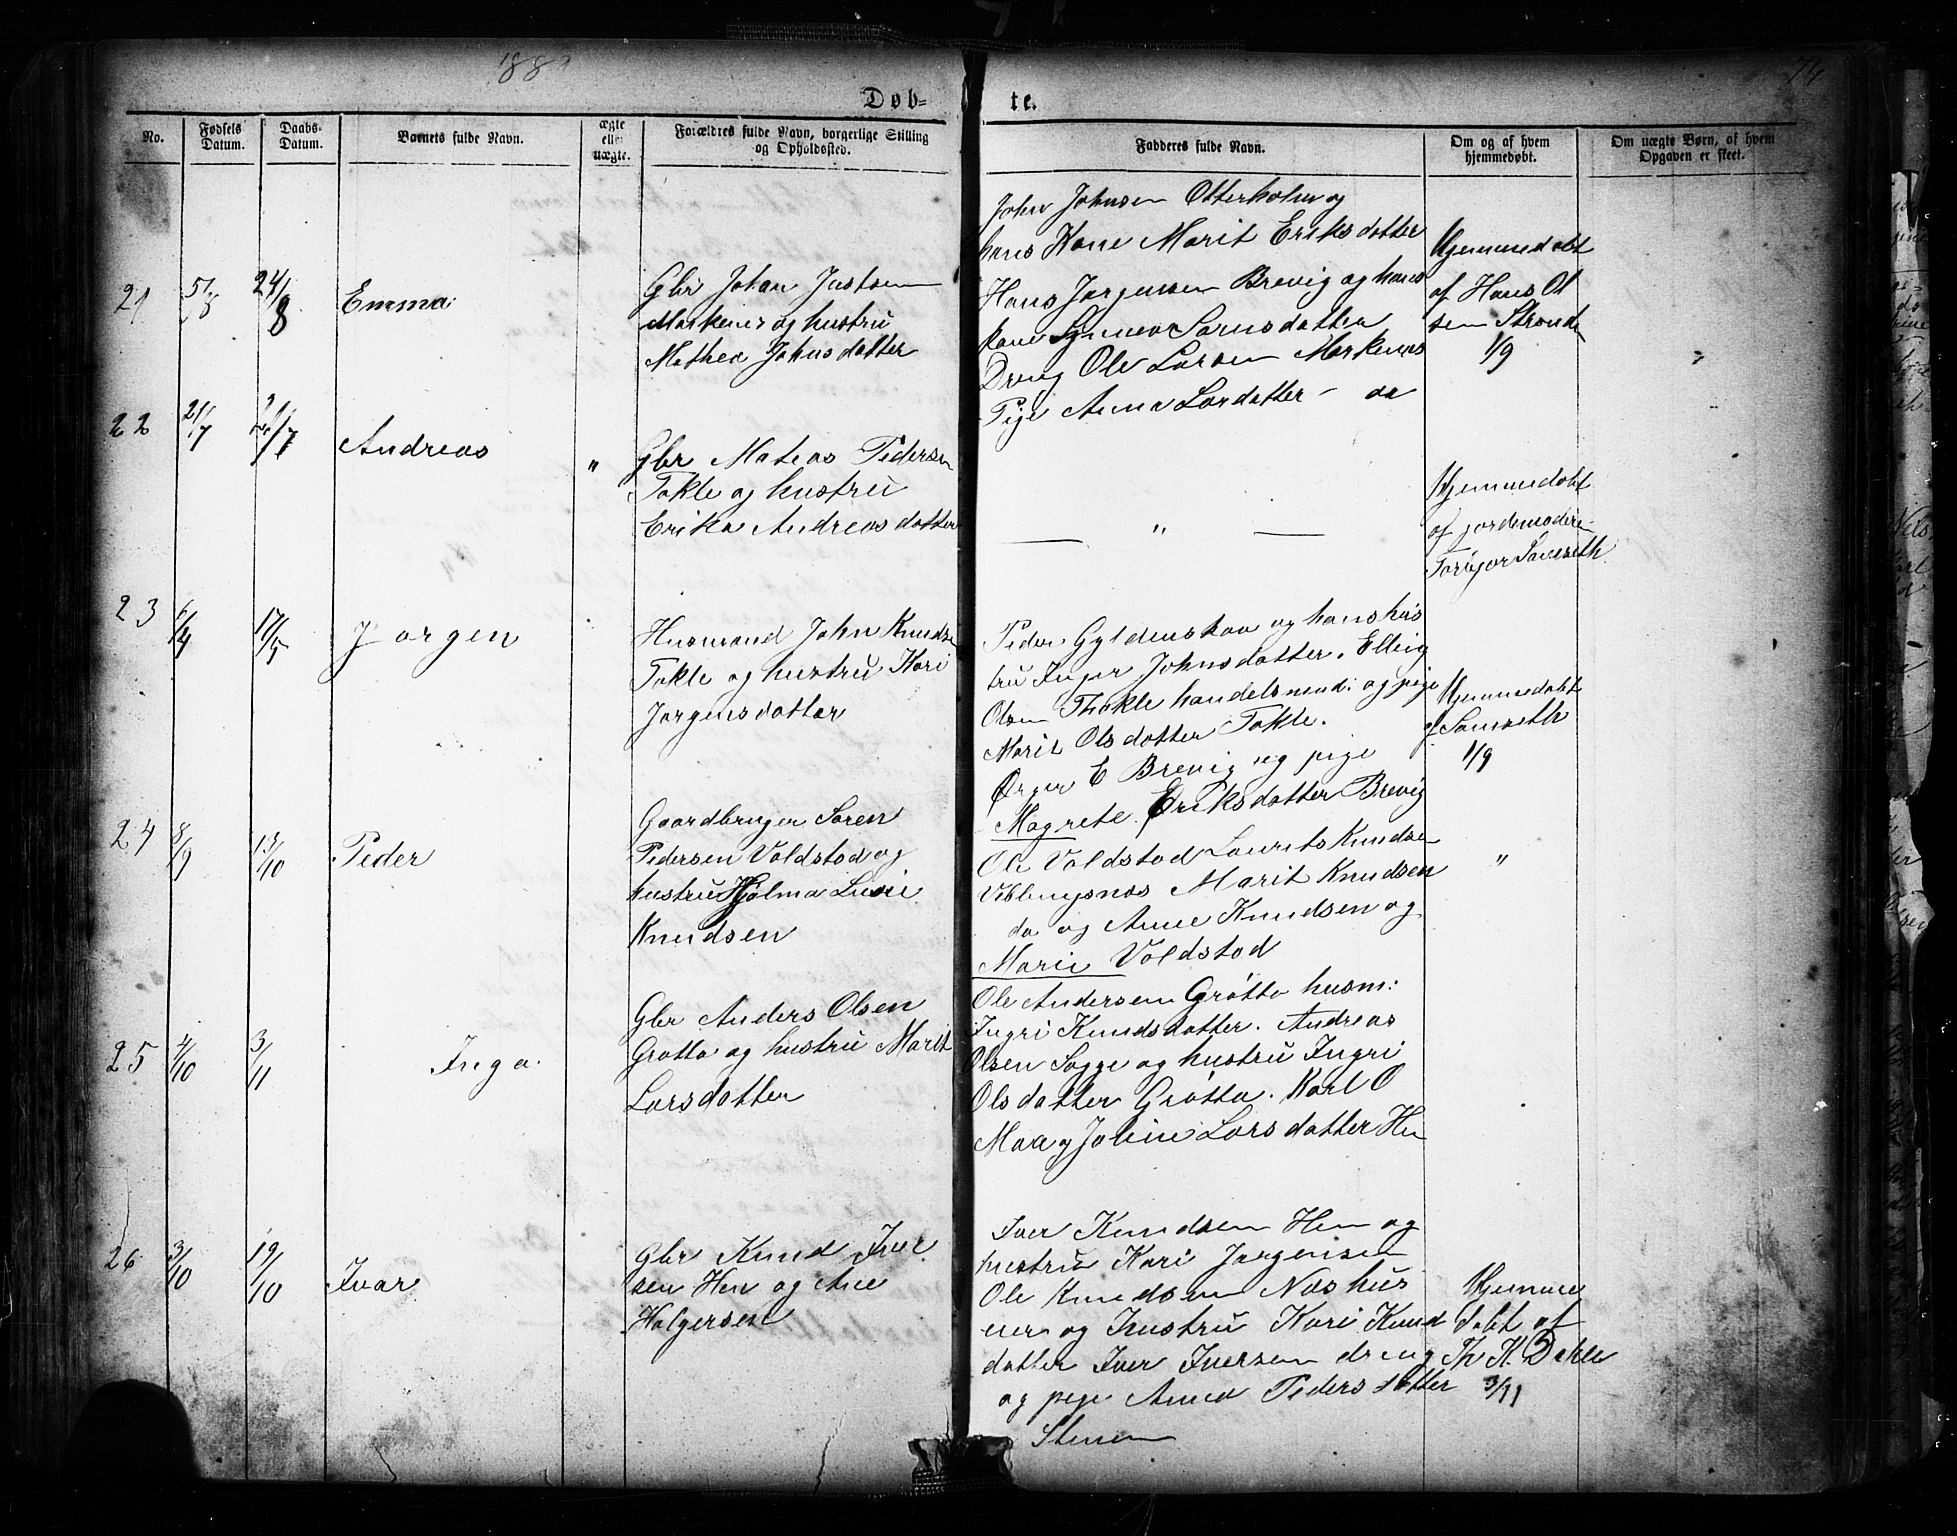 188
74
Døb-
te.
No.
Fødsels Datum.
Daabs-Datum.
Barnets fulde Navn.
ægte eller uægte.
Forældres fulde Navn, borgerlige Stilling og Opholdssted.
Fadderes fulde Navn.
Om og af hvem hjemmedøbt.
Om uægte Børn, af hvem Opgaven er skeet.
21
5/8
24/8
Emma
Gbr Johan Justsen
Markenes og hustru
Mathea Johnsdatter
John Johnsen Otterholm og
hans Kone Marit Eriksdatter
Hans Jørgensen Brevig og hans
kone
Dreng Ole Larsen Markenes
Pige Anna Larsdatter - do
Hjemmedøbt
af Hans Ol
sen Strand
1/9
22
21/7
Andreas
"
Gbr Mateas Pedersen
Tokle og hustru
Erika Andreasdatter
— " —
Hjemmedøbt
af jordemoderen
23
6/4
17/5
Jørgen
Husmand John Knudsen
Tokle og hustru Kari
Jørgensdatter
Peder Gyldenskaa og hans hus
tru Inger Johnsdatter. Elling
Olsen Thokle handelsmend: og pige
Marit Olsdatter Tokle.
E Brevig og pige
Magrete Eriksdatter Brevig
Hjemmedøbt
af
1/9
24
8/9
13/10
Peder
Gaardbruger Søren
Pedersen Voldstad og
hustru Hjalma Lusie
Knudsen
Ole Voldstad Laurits Knudsen
Vebbungsnes Marit Knudsen
do og Anne Knudsen og
Marie Voldstad
"
25
4/10
3/11
Inga
Gbr Anders Olsen
Grøtta og hustru Marit
Larsdatter
Ole Andersen Grøtta husm:
Ingri Knudsdatter. Andreas
Olsen Sogge og hustru Ingri
Olsdatter Grøtta. Karl O
Moa og Joline Larsdatter Hen
26
3/10
19/10
Ivar
Gbr Knud Iver
sen Hen og Ane
Holgersen
Iver Knudsen Hen og
hustru Kari Jørgensen
Ole Knudsen Næs hus
eier og hustru Kari Knud
datter Iver Iversen dreng
og pige Anna Pedersdatter
Stenen
Hjemme
døbt af
Th K. Dahle
3/11